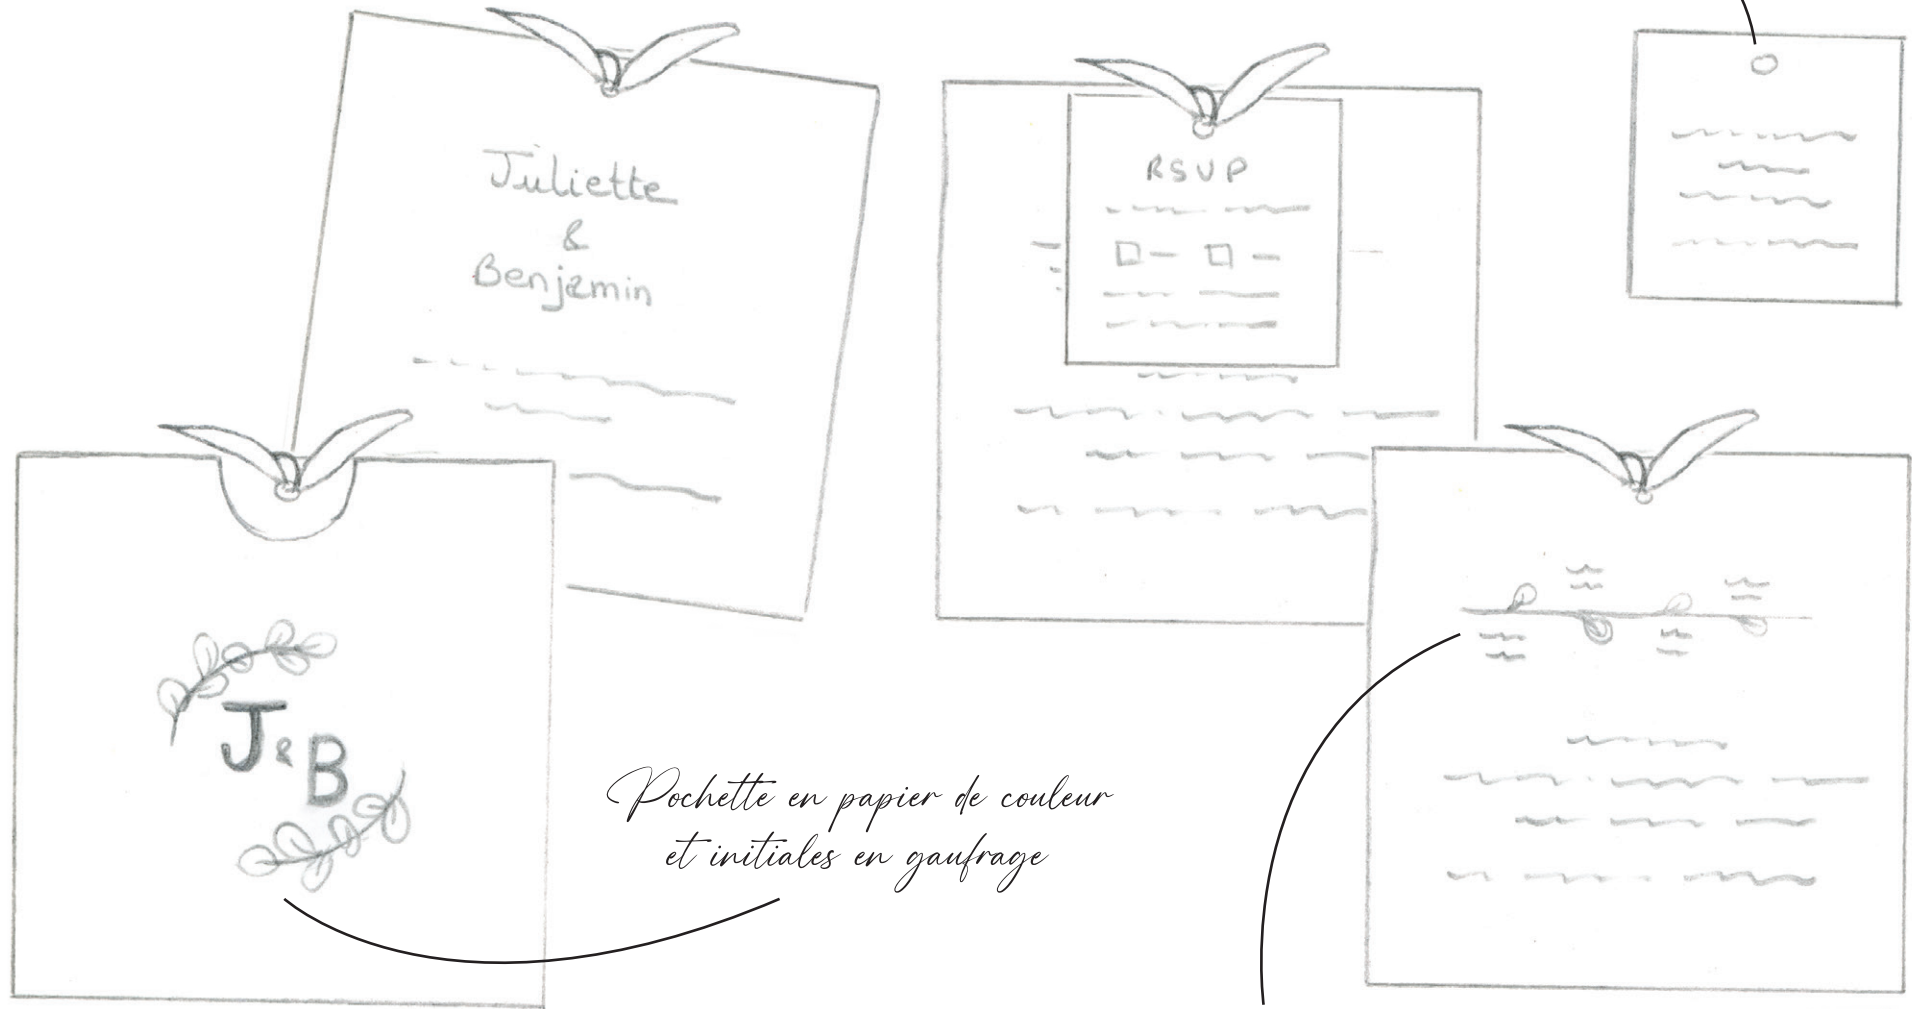 Juliette
&
Benjamin
RSVP
J & B
Pochette en papier de couleur
et initiales en gaufrage